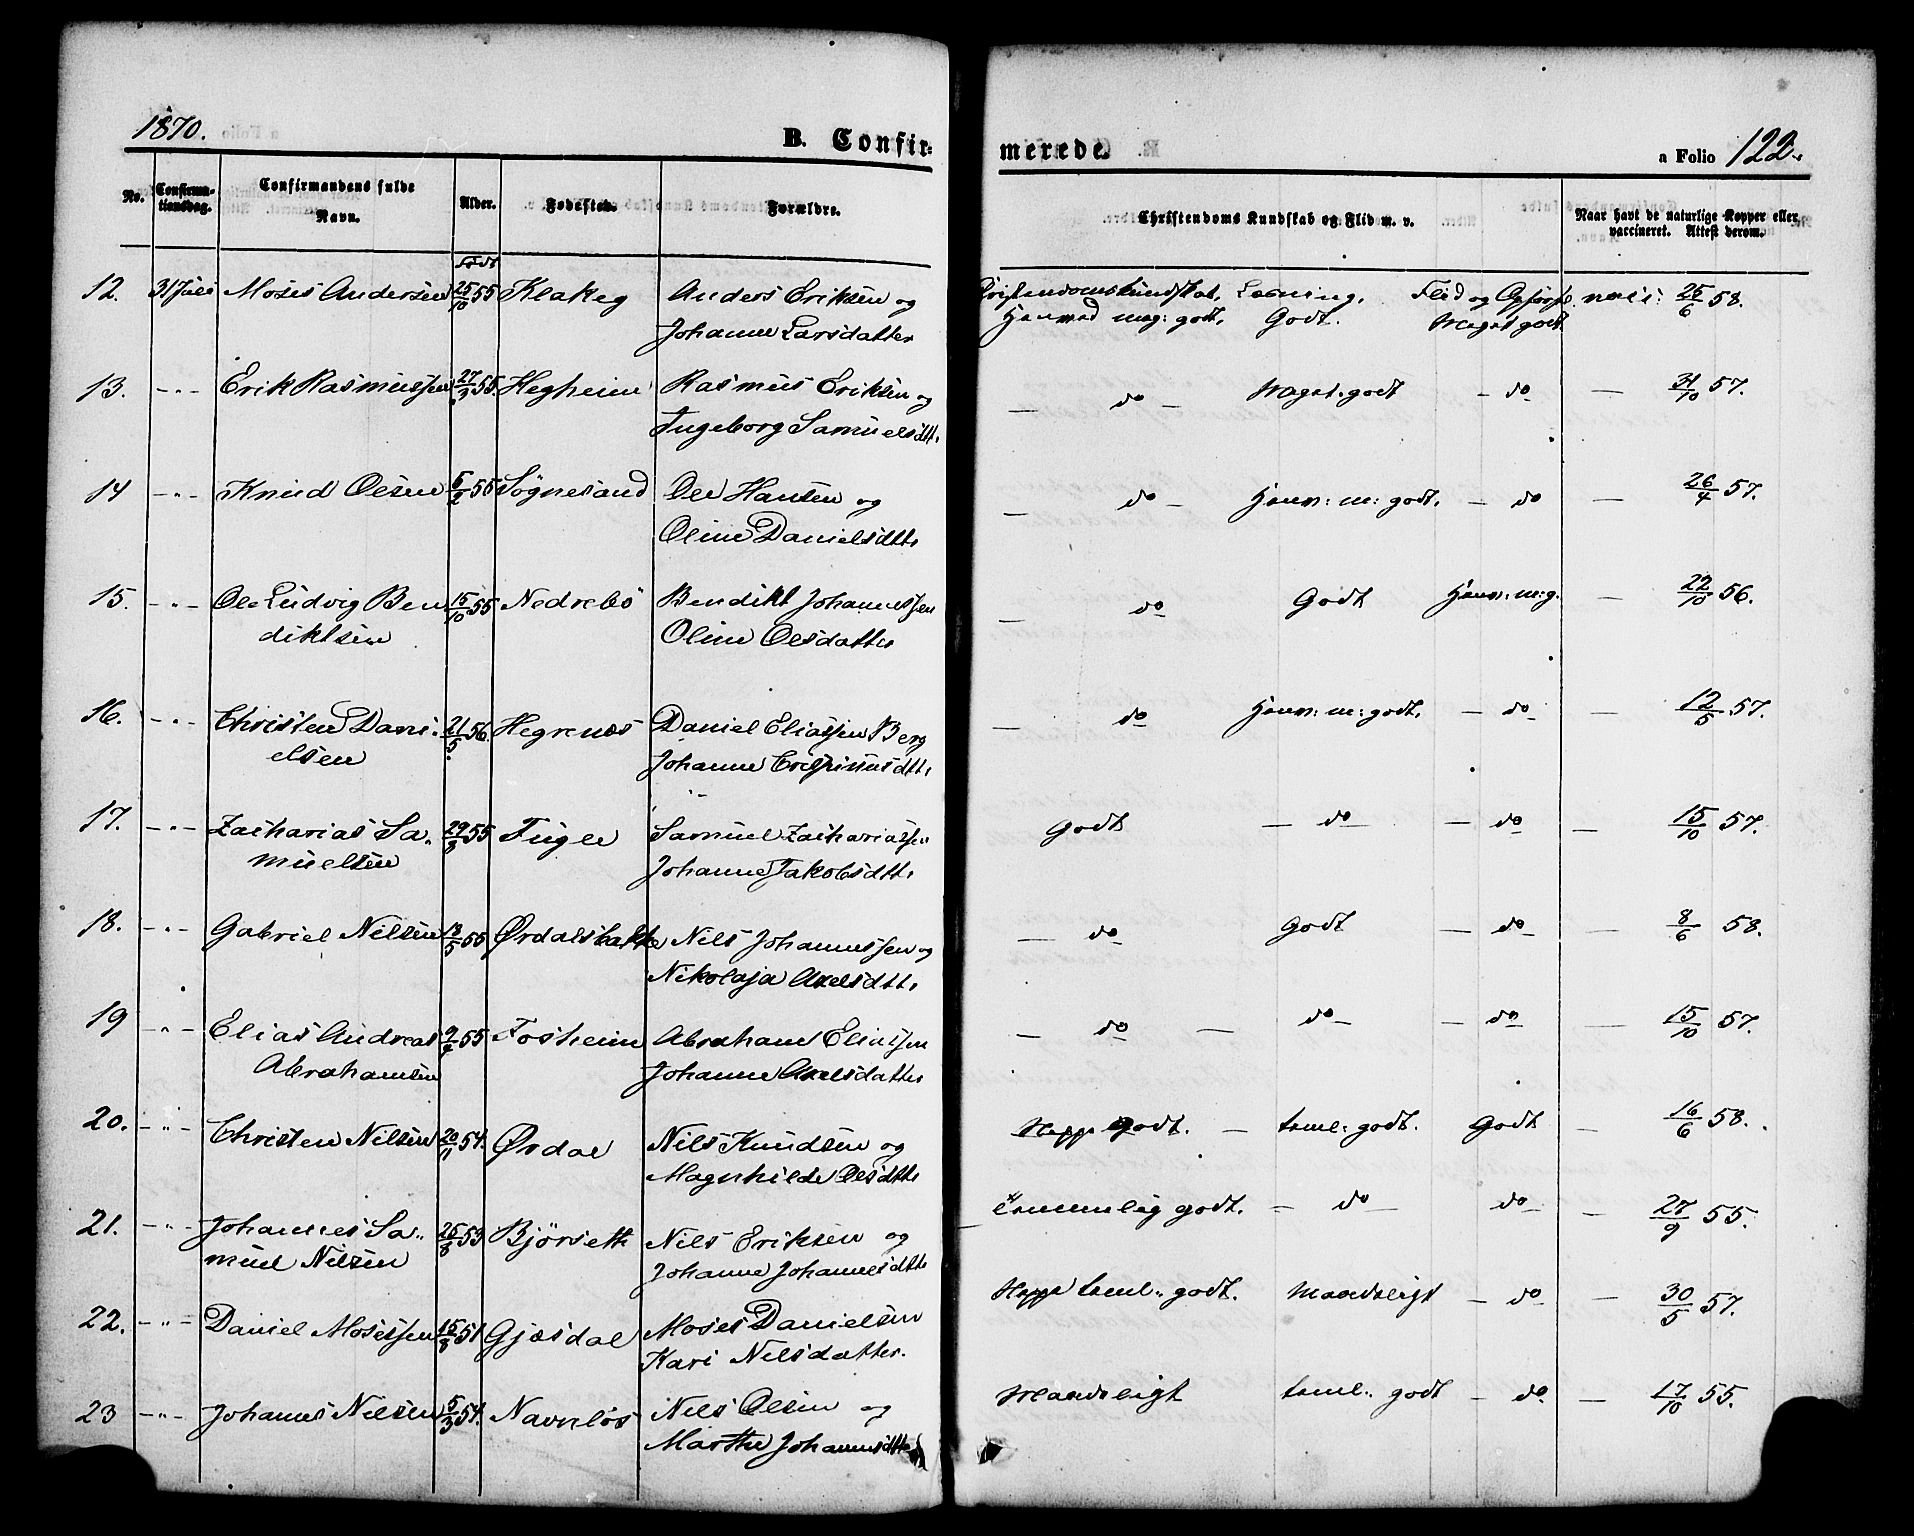 1870.
B. Confir-
merede.
a Folio 122.
No.
Confirma-
tionsdag.
Confirmandens fulde
Navn.
Alder.
Fødested.
Forældre.
Christendoms Kundskab og Flid m. v.
Naar havt de naturlige Kopper eller
vaccineret. Attest derom.
12. 31 Juli Moses Andersen 25/10 55 Klakeg Anders Eriksen og
Johanne Larsdatter
Læsning. Flid og
mag: godt. Godt. Meget godt. 25/6 58.
13. -"- Erik Rasmussen 27/3 55. Hegheim Rasmus Eriksen og
Ingeborg Samuelsdtt.
— do — Meget godt — do — 31/10 57.
14 -"- Knud Olsen 6/2 56 Sögnesand Ole Hansen og
Oline Danielsdtt.
— do m: godt. — do — 26/4 57.
15. -"- Ole Ludvig Ben 15/10 55 Nedrebö Bendikt Johannessen
diktsen Oline Olsdatter
— do Godt m: g. — 22/10 56.
16. -"- Christen Dani- 21/5 56. Hegrenæs Daniel Eliassen Berg
elsen Johanne
— do m: godt. — do — 12/5 57.
17. -"- Zacharias Sa- 29/8 55 Fugle Samuel Zachariassen
muelsen Johanne Jakobsdtt.
Godt — do — — do — 15/10 57.
18. -"- Gabriel Nilsen 18/5 55 Ørdalsbakke Nils Johannessen og
Nikolaja Axelsdtt.
— do — Godt — do — 8/6 58.
19 -"- Elias Andreas 9/4 55 Fosheim Abraham Eliassen
Abrahamsen Johanne Axelsdatter
— do — do — — do — 15/10 57.
20. -"- Christen Nilsen 20/11 54. Ørdal Nils Knudsen og
Magnhilde Olsdtt.
godt. — taml: godt. Godt — 16/6 58.
21. -"- Johannes Sa- 26/8 53 Björsett Nils Eriksen og
muel Nilsen Johanne Johannesdtt.
— Tammelig godt. — do — do — 27/9 55.
22. -"- Daniel Mosessen 15/8 51 Gjæsdal Moses Danielsen
Kari Nilsdatter.
Neppe taml: godt. Maadeligt — do — 30/5 57.
23 -"- Johannes Nilsen 5/3 54. Navnløs Nils Olsen og
Marthe Johannesdtt.
Maadeligt taml: godt — do — 17/10 55.